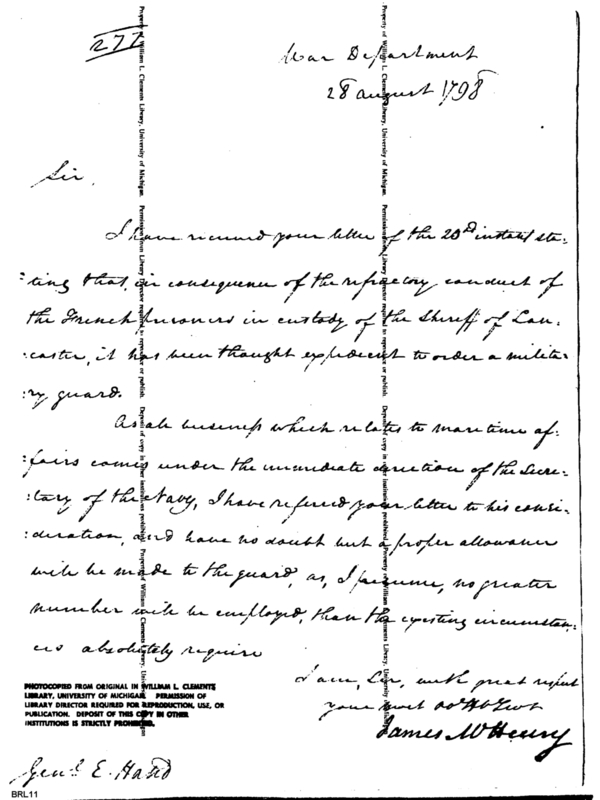 277
War Department
28 august 1798
Sir,
I have received your letter of the 20th instant sta-
:ting that in consequence of the refractory conduct of
the French prisoners in custody of the Sheriff of Lan-
:caster, it has been thought expedient to order a milita-
:ry guard.
As all business which relates to maritime af-
:fairs comes under the immediate direction of the Secre-
:tary of the Navy, I have referred your letter to his consi-
:deration, and have no doubt but a proper allowance
will be made to the guard, as, I presume, no greater
number will be employed, than the existing circumstan-
ces absolutely require
I am, Sir, with great respect
your most obd Hb Servt
James McHenry
Genl E. Hand
PHOTOCOPIED FROM ORIGINAL IN WILLIAM L. CLEMENTS
LIBRARY, UNIVERSITY OF MICHIGAN. PERMISSION OF
LIBRARY DIRECTOR REQUIRED FOR REPRODUCTION, USE, OR
PUBLICATION. DEPOSIT OF THIS COPY IN OTHER
INSTITUTIONS IS STRICTLY PROHIBITED.
BRL11
Property of William L. Clements Library, University of Michigan. Permission of Library Director required to reproduce or publish. Deposit of copy in other institutions prohibited.
Property of William L. Clements Library, University of Michigan. Permission of Library Director required to reproduce or publish. Deposit of copy in other institutions prohibited.